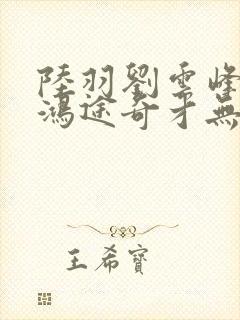 陸羽劉雲峰
鴻途奇才無
王希寶